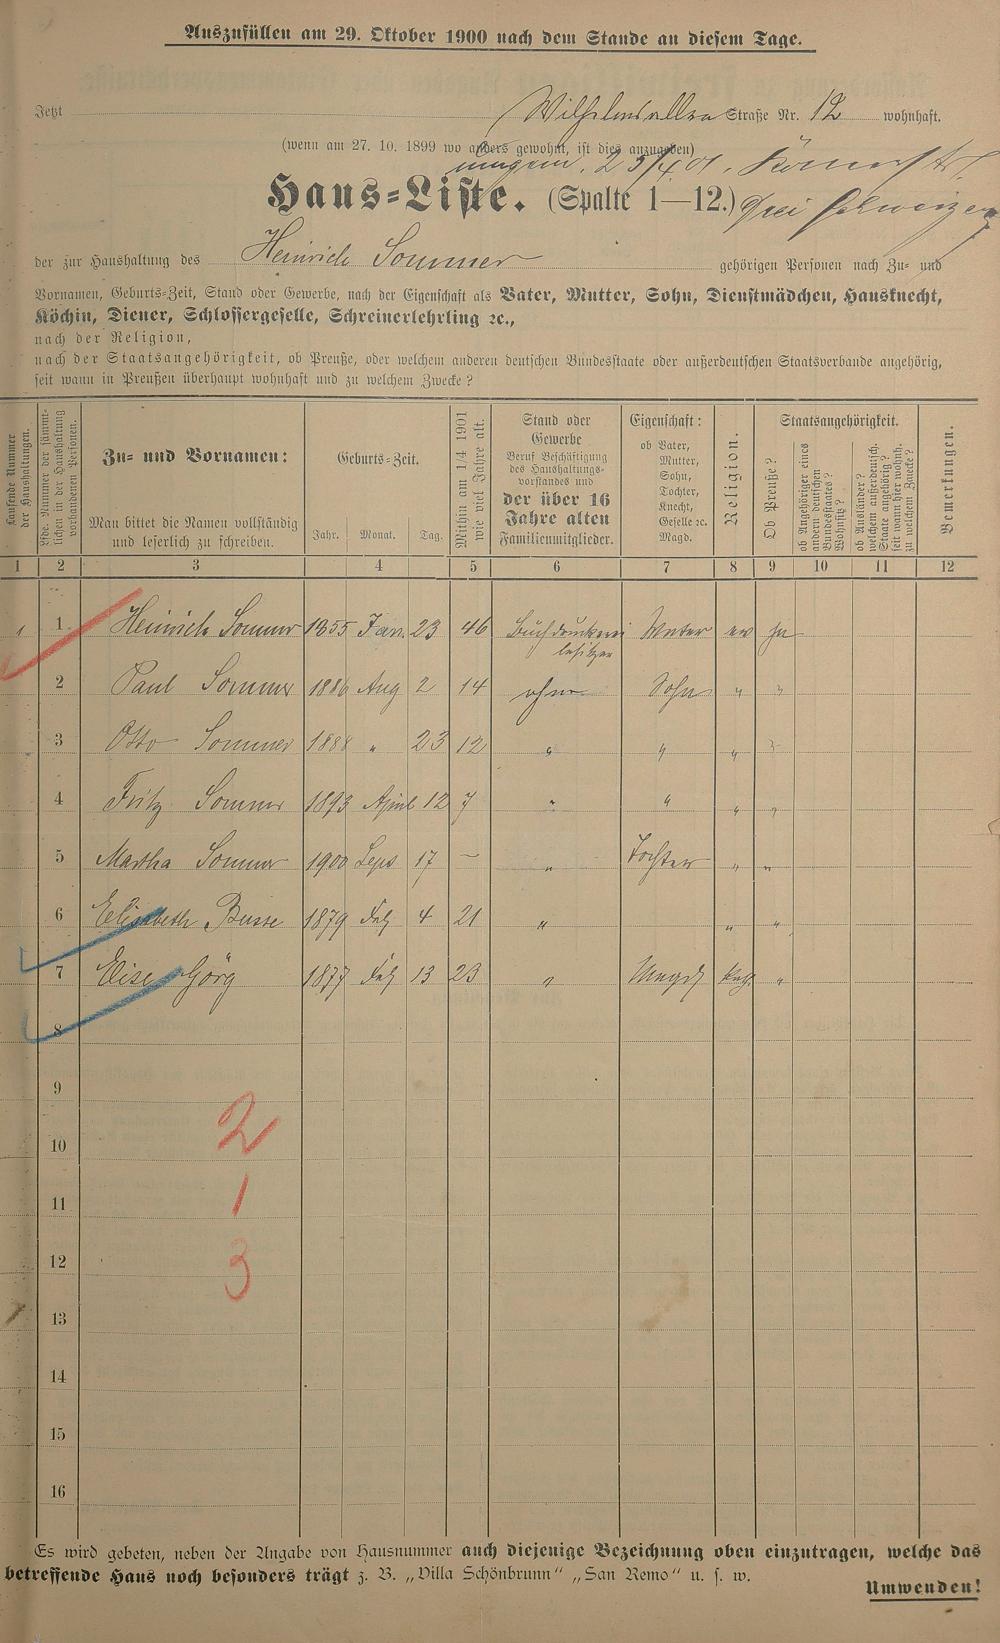 Auszufüllen am 29. Oktober 1900 nach dem Stande an diesem Tage.
Jetzt Wilhelmsallee Straße Nr. 12 wohnhaft.
(wenn am 27. 10. 1899 wo anders gewohnt, ist dies anzugeben)
Haus-Liste. (Spalte 1—12.)
der zur Haushaltung des Heinrich Sommer gehörigen Personen nach Zu- und
Vornamen, Geburts-Zeit, Stand oder Gewerbe, nach der Eigenschaft als Vater, Mutter, Sohn, Dienstmädchen, Hausknecht,
Köchin, Diener, Schlossergeselle, Schreinerlehrling ꝛc.,
nach der Religion,
nach der Staatsangehörigkeit, ob Preuße, oder welchem anderen deutschen Bundesstaate oder außerdeutschen Staatsverbande angehörig,
seit wann in Preußen überhaupt wohnhaft und zu welchem Zwecke?
Laufende Nummer der Haushaltungen.
Lfde. Nummer der sämmtlichen in der Haushaltung vorhandenen Personen.
Zu- und Vornamen:
Man bittet die Namen vollständig
und leserlich zu schreiben.
Geburts-Zeit.
Jahr. Monat. Tag.
Mithin am 1/4 1901 wie viel Jahre alt.
Stand oder
Gewerbe
Beruf Beschäftigung
des Haushaltungs-
vorstandes und
der über 16
Jahre alten
Familienmitglieder.
Eigenschaft:
ob Vater,
Mutter,
Sohn,
Tochter,
Knecht,
Geselle ꝛc.
Magd.
Religion.
Staatsangehörigkeit.
Ob Preuße?
ob Angehöriger eines andern deutschen Bundesstaates? Wohnsitz?
ob Ausländer? welchem außerdeutsch. Staate angehörig? seit wann hier wohnh. zu welchem Zwecke?
Bemerkungen.
1 2 3 4 5 6 7 8 9 10 11 12
1 1 Heinrich Sommer 1855 Jan. 23 46 Buchdruckerei besitzer Vater ev ja
2 Paul Sommer 1886 Aug 2 14 ohne Sohn " "
3 Otto Sommer 1888 " 23 12 " " " "
4 Fritz Sommer 1893 April 12 7 " " " "
5 Martha Sommer 1900 Seps 17 — " Tochter " "
6 Elisabeth Busse 1879 4 21 " " "
7 Elise Görg 1877 13 23 " Magd kath. "
8
9
10
11
12
13
14
15
16
2
1
3
Es wird gebeten, neben der Angabe von Hausnummer auch diejenige Bezeichnung oben einzutragen, welche das
betreffende Haus noch besonders trägt z. B. „Villa Schönbrunn" „San Remo" u. s. w.
Umwenden!